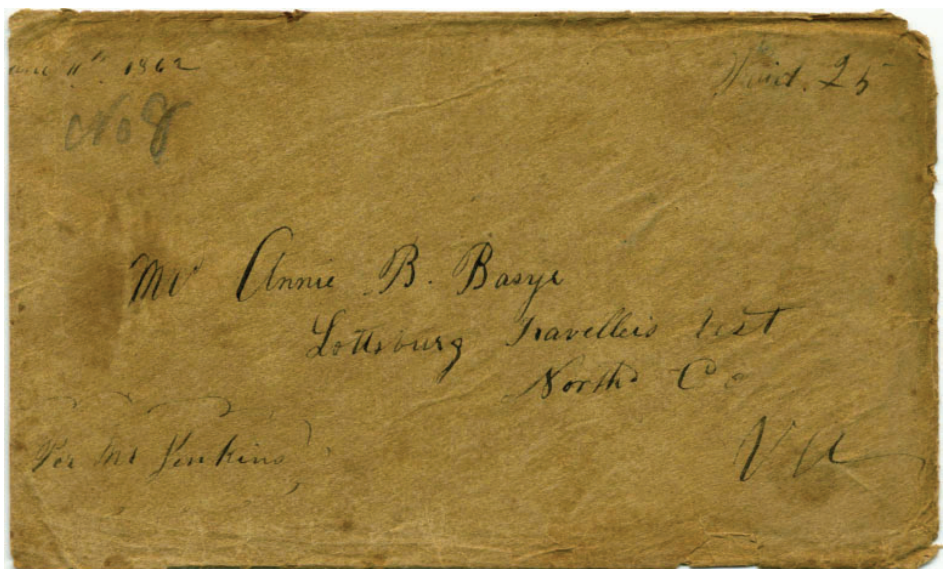 June 11th. 1862
25
No 8
Mrs Annie B. Basye
Lottsburg Travellers Rest
North Co
VA
Per Mr Jenkins